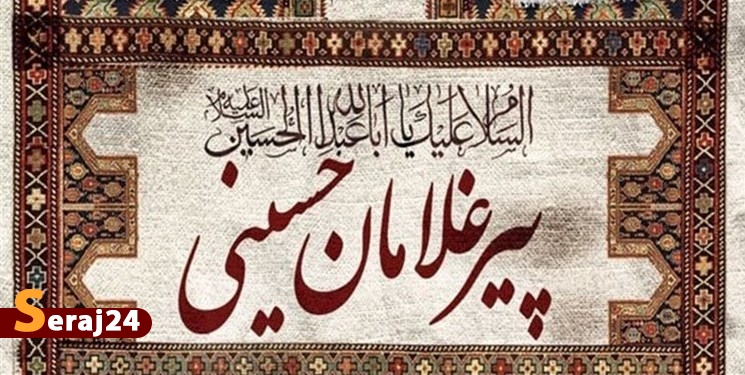 السلام علیک یا اباعبدالله الحسین علیه السلام
پیرغلامان حسینی
Seraj24